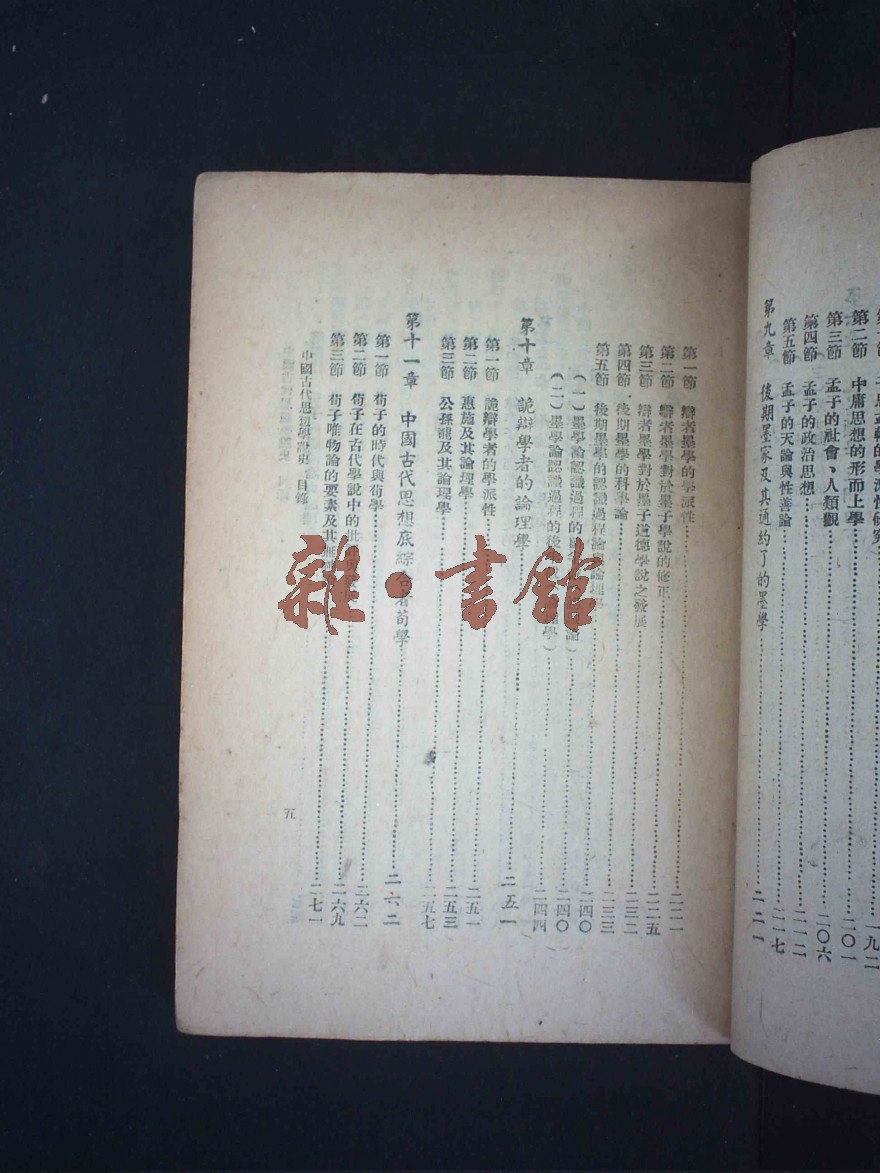 第二節 中庸思想的形而上學 二〇一
第三節 孟子的社會、人類觀 二〇六
第四節 孟子的政治思想 二一二
第五節 孟子的天論與性善論 二一七
第九章 後期墨家及其通約了的墨學 二二一
第一節 辯者墨學的學派性 二二一
第二節 辯者墨學對於墨子學說的修正 二二五
第三節 辯者墨學對於墨子道德學說之發展
第四節 後期墨學的科學論 二三二
第五節 後期墨學的認識過程論與論理學 二三三
(一)墨學論認識過程的 論) 二四〇
(二)墨學論認識過程的後 學) 二四〇
二四四
第十章 詭辯學者的論理學 二五一
第一節 詭辯學者的學派性 二五一
第二節 惠施及其論理學 二五三
第三節 公孫龍及其論理學 二五七
第十一章 中國古代思想底綜合者荀學 二六二
第一節 荀子的時代與荀學 二六二
第二節 荀子在古代學說中的批 發展 二六九
第三節 荀子唯物論的要素及其 二七一
中國古代思想學說史 目錄
五
雜·書館